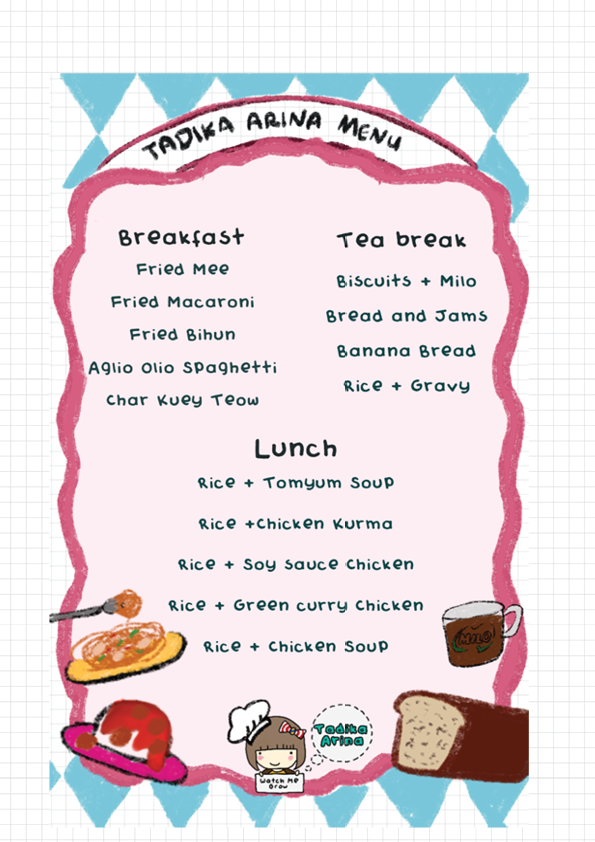 TADIKA ARINA MENU
Breakfast
Fried Mee
Fried Macaroni
Fried Bihun
Aglio Olio Spaghetti
Char Kuey Teow
Tea break
Biscuits + Milo
Bread and Jams
Banana Bread
Rice + Gravy
Lunch
Rice + Tomyum Soup
Rice +Chicken Kurma
Rice + Soy Sauce Chicken
Rice + Green curry Chicken
Rice + Chicken Soup
MILO
Tadika
Arina
Watch Me
Grow